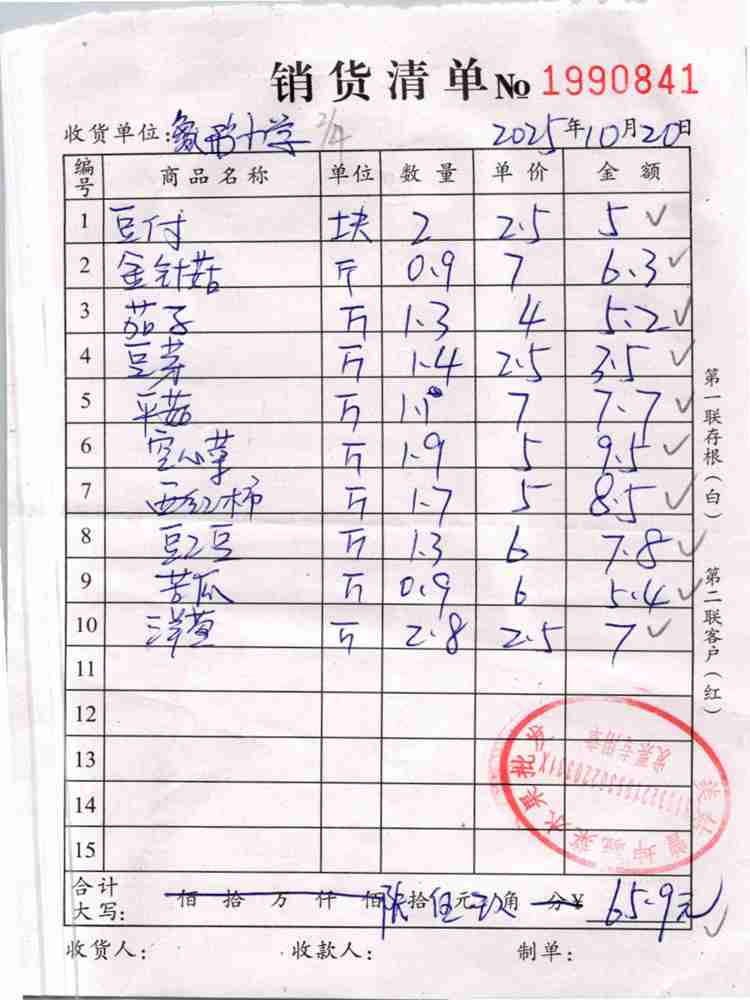 销货清单 № 1990841
收货单位: 小学 2/4 2025年10月20日
编号 商品名称 单位 数量 单价 金额
1 豆付 块 2 2.5 5 ✓
2 金针菇 斤 0.9 7 6.3 ✓
3 茄子 斤 1.3 4 5.2 ✓
4 豆芽 斤 1.4 2.5 3.5 ✓
5 平菇 斤 1.1 7 7.7 ✓
6 空心菜 斤 1.9 5 9.5 ✓
7 西红柿 斤 1.7 5 8.5 ✓
8 豇豆 斤 1.3 6 7.8 ✓
9 苦瓜 斤 0.9 6 5.4 ✓
10 洋葱 斤 2.8 2.5 7 ✓
11
12
13
14
15
合计大写: 佰拾万仟佰陆拾伍元玖角分¥ 65.9元 ✓
收货人: 收款人: 制单:
第一联存根(白) 第二联客户(红)
蔬菜水果批发
发票专用章